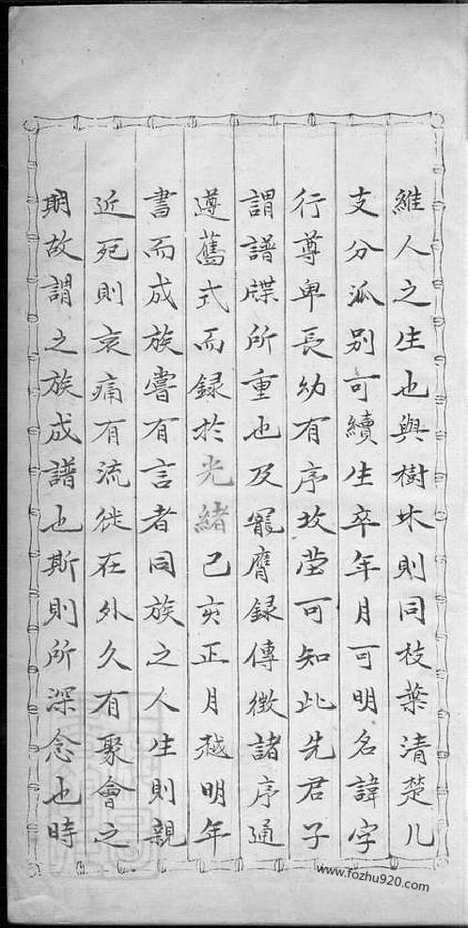 維人之生也與樹木則同枝葉清楚凡
支分派別可續生卒年月可明名諱字
行尊卑長幼有序坟茔可知此先君子
謂譜牒所重也及寵膺録傳徴諸序通
遵舊式而録於光緒己亥正月越明年
書而成族嘗有言者同族之人生則親
近死則哀痛有流徙在外久有聚會之
期故謂之族成譜也斯則所深念也時
www.fozhu920.com